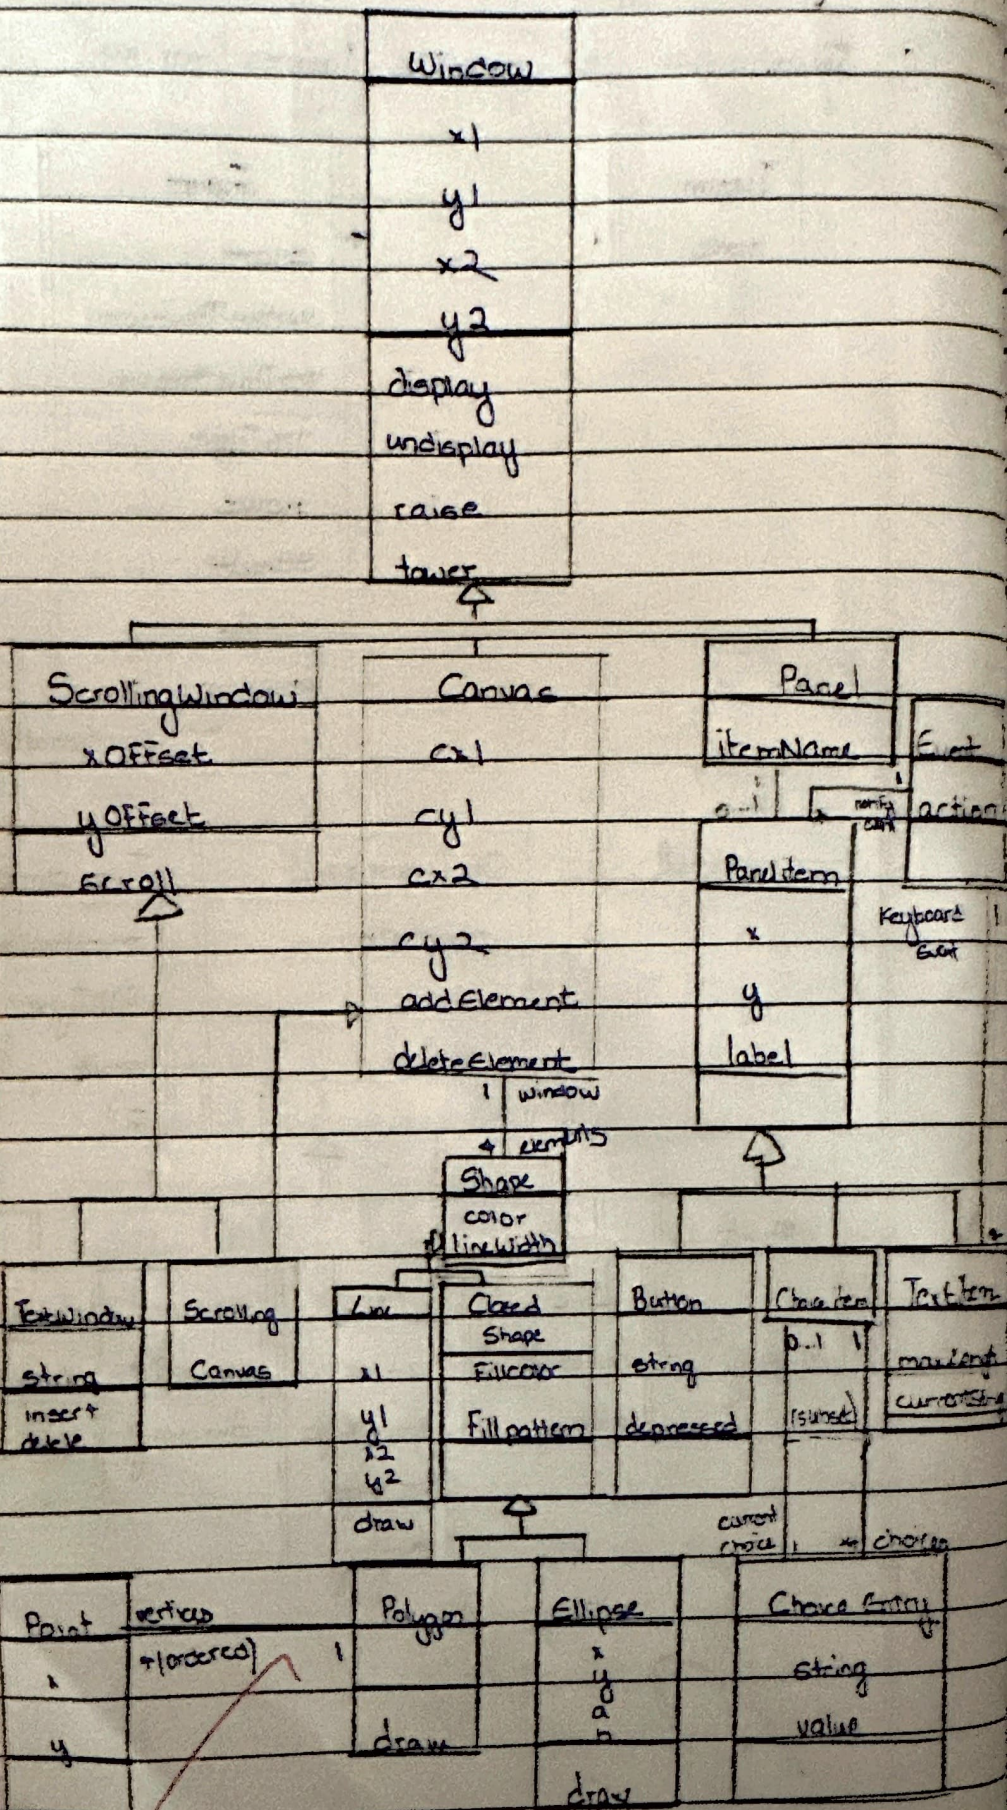 Window
x1
y1
x2
y2
display
undisplay
raise
tower
ScrollingWindow
xOffset
yOffset
scroll
Canvas
cx1
cy1
cx2
cy2
addElement
deleteElement
Panel
itemName
Event
action
0..1
1
notify
PanelItem
x
y
label
Keyboard
Event
1
1 window
elements
Shape
color
lineWidth
TextWindow
string
insert
delete
Scrolling
Canvas
Line
x1
y1
x2
y2
draw
Closed
Shape
Fillcolor
Fill pattern
Button
string
depressed
ChoiceItem
0..1 1
(subset)
current
choice
choices
TextItem
maxLength
Point
x
y
vertices
(ordered) 1
Polygon
draw
Ellipse
x
y
a
b
draw
Choice Entry
string
value